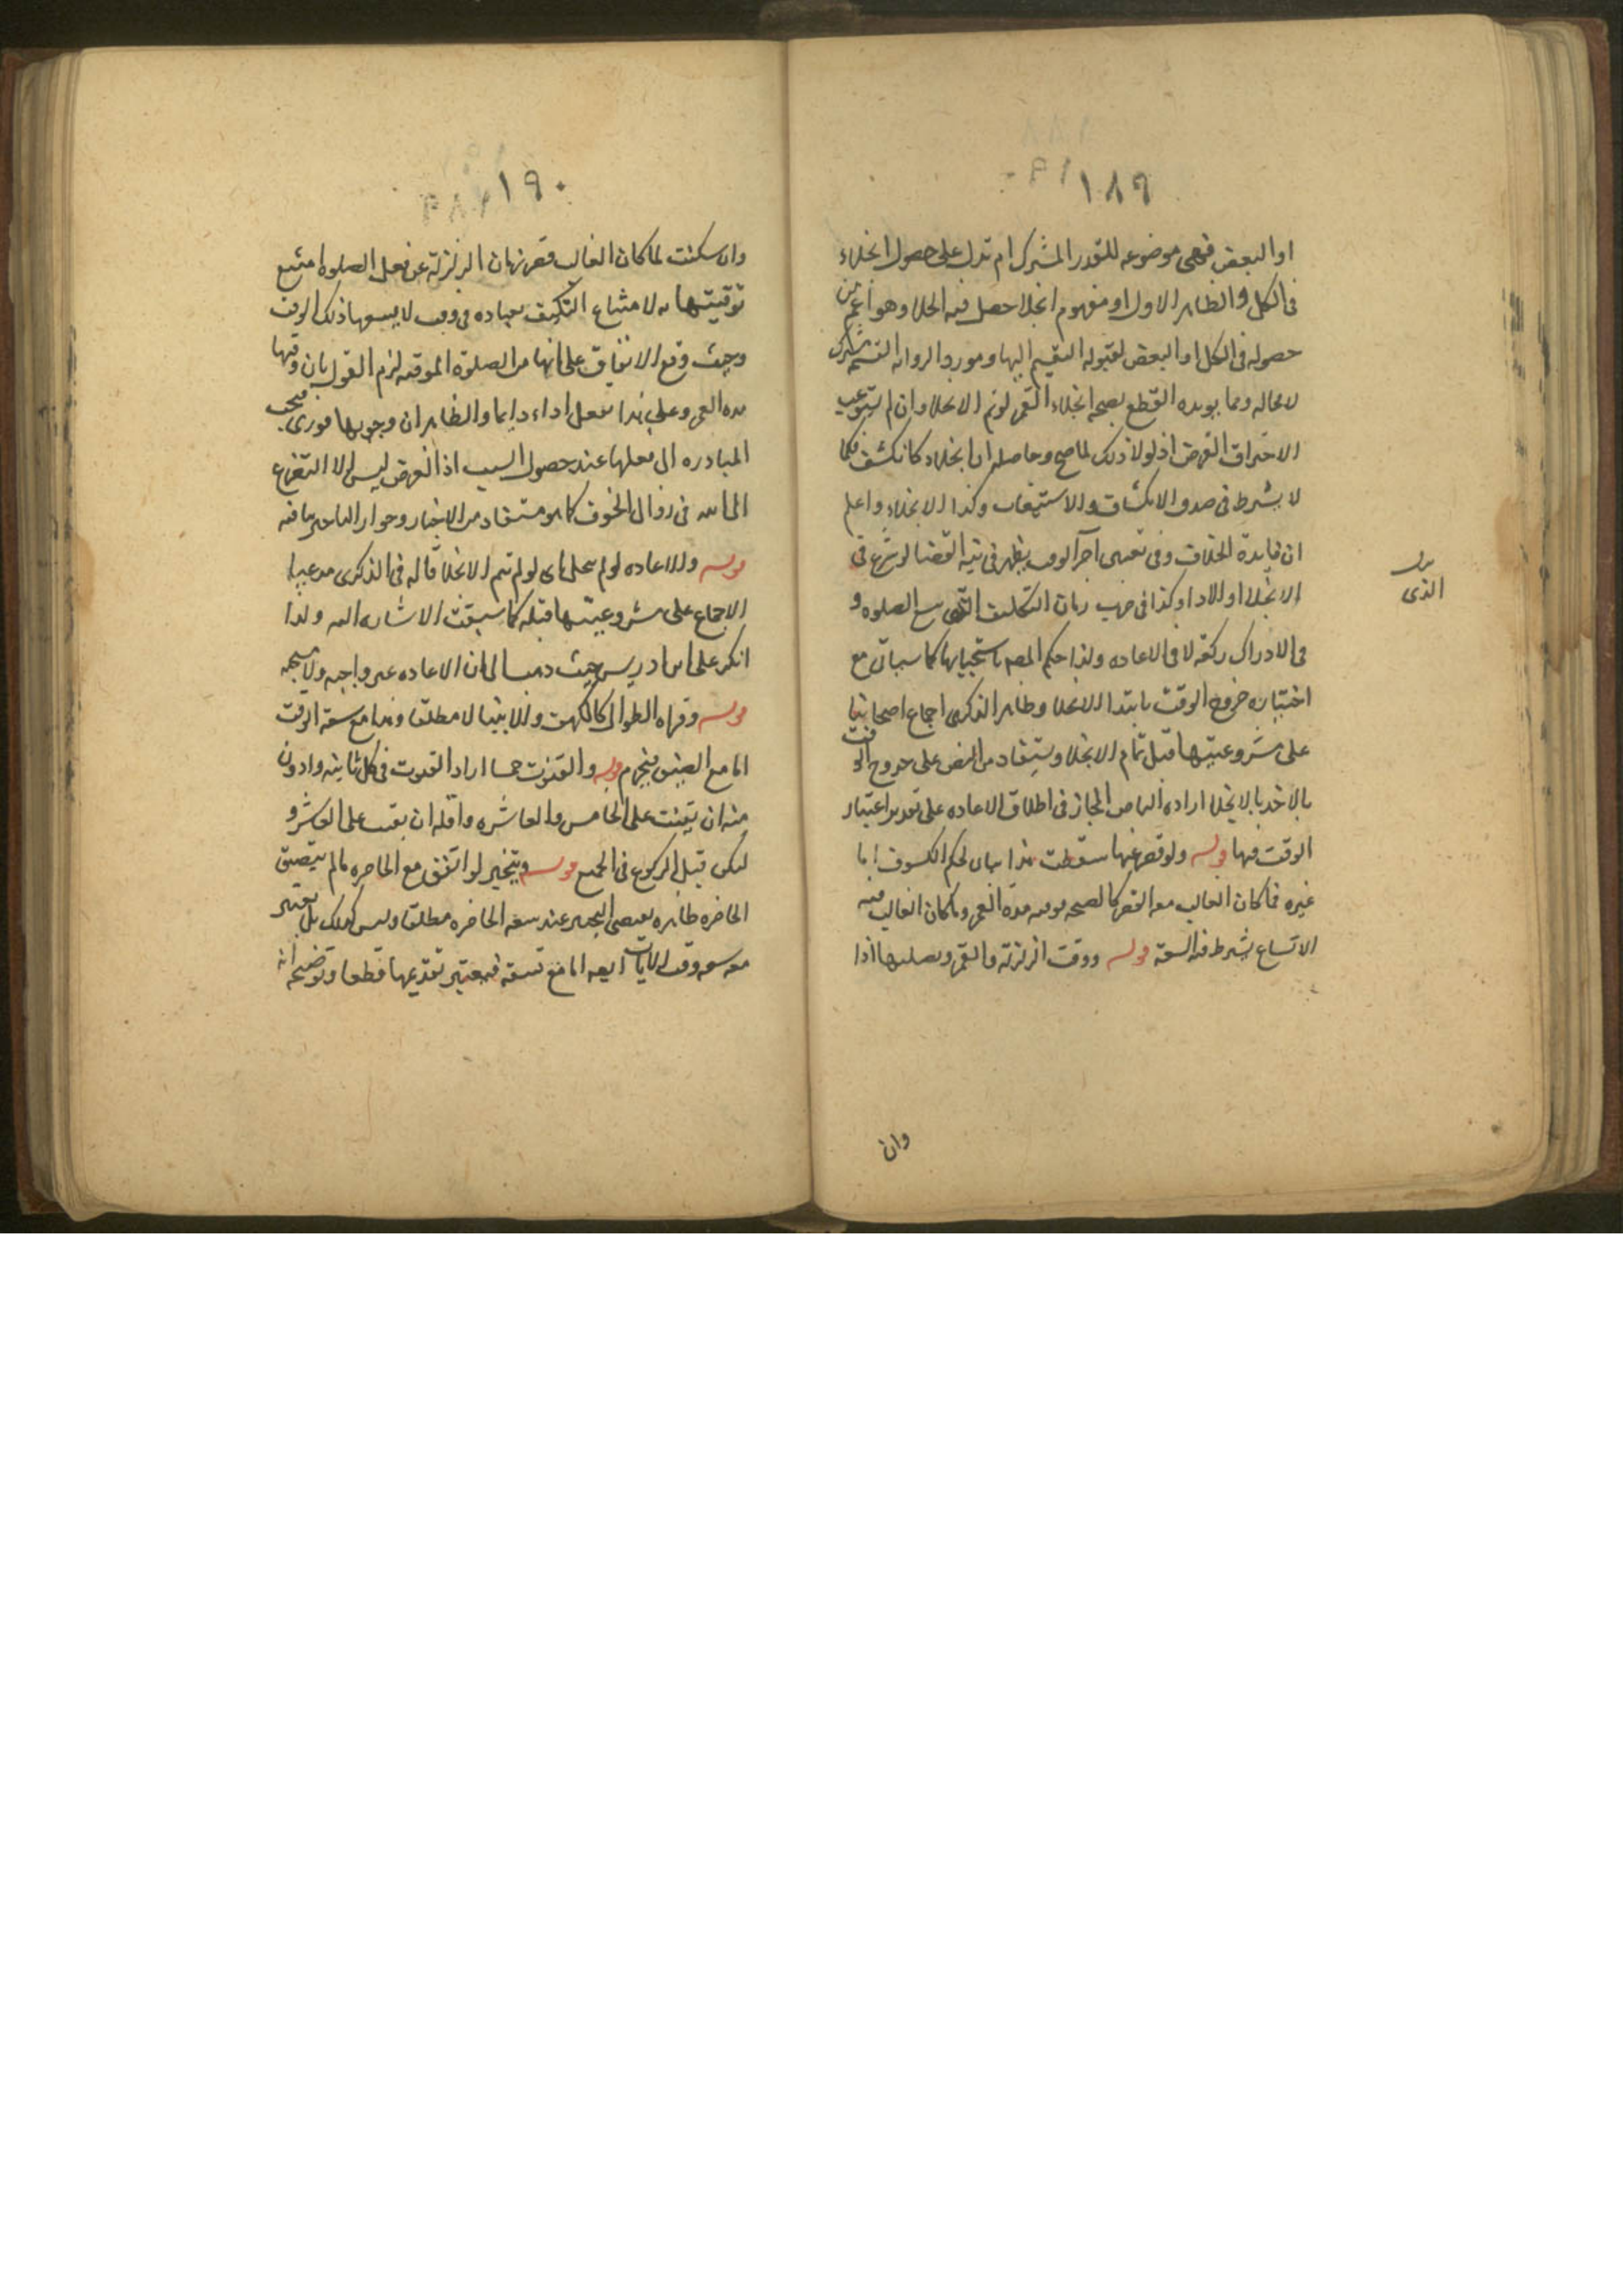 ١٨٩
او البعض فهى موضوعه للقدر المشترك ام تدل على حصول انجلاء
فى الكل والظاهر الاول او مفهوم انجلا حصل فيه انجلا وهو اعم من
حصوله فى الكل او البعض لقبوله التقسيم اليها ومورد القسمة مشترك
لا محاله ومما يويده القطع بصحه انجلاء القمر لو تم الانجلا وان لم يستوعب
الاحتراق القرص اذ لولا ذلك لما صح وحاصله ان انجلاء كانكشف فكما
لا يشترط فى صدق الانكشاف والاستيعاب وكذا الانجلاء واعلم
ان فايدة الخلاف وفى تعيين آخر الوقت يظهر فى نيه القضا لو شرع فى
الانجلا او الادا وكذا فى ضرب زمان التكليف الذى يسع الصلوه و
فى الادراك ركعة لا فى الاعاده ولذا حكم المصه باستحبابها كما سياتى مع
اختياره خروج الوقت بابتدا الانجلا وظاهر الذكرى اجماع اصحابنا
على مشروعيتها قبل تمام الانجلا ويستفاد من النص على خروج الوقت
بالاخذ بالانجلا اراده الماضى المجاز فى اطلاق الاعاده على تقدير اعتبار
الوقت فيها قوله ولو قصر عنها سقطت هذا بيان لحكم الكسوف اما
غيره فما كان الغالب معه القصر كالصيحه فوقته مدة العمر وما كان الغالب فيه
الاتساع يشترط فيه السعة قوله ووقت الزلزلة والقمر ويصليها اذا
الذى
وان
١٩٠
وان سكنت لما كان الغالب قصر زمان الزلزلة عن فعل الصلوه امتنع
توقيتها به لامتناع التكليف بعباده فى وقت لا يسعها ذلك الوقت
وحيث وقع الاتفاق على انها من الصلوة الموقته لزم القول بان وقتها
مده العمر وعلى هذا تفعل اداء دايما والظاهر ان وجوبها فورى فيجب
المبادره الى فعلها عند حصول السبب اذ الغرض ليس الا التضرع
الى الله فى زوال الخوف كما هو مستفاد من الاخبار وجواز التاخير ينافيه
قوله والاعاده لو لم ينجل اى لو لم يتم الانجلا قاله فى الذكرى مدعيا
الاجماع على مشروعيتها قبله كما سبقت الاشاره اليه ولذا
انكر على ابن ادريس حيث ذهب الى ان الاعاده غير واجبه ولا مستحبه
قوله وقراه الطوال كالكهف والانبيا لا مطلقا وهذا مع سعة الوقت
اما مع الضيق فيحرم قوله والقنوت خمسا اراد القنوت فى كل ثانيه وادون
منه ان يقنت على الخامس والعاشره واقله ان يقنت على العاشر و
ليكن قبل الركوع فى الجميع قوله ويتخير لو اتفق مع الحاضره ما لم يتضيق
الحاضره ظاهره يقتضى التخيير عند سعة الحاضره مطلقا وليس كذلك بل يعتبر
معه سعه وقت الايات ايضا اما مع تضيقه فيعتبر تقديمها قطعا وتوضيحه انه